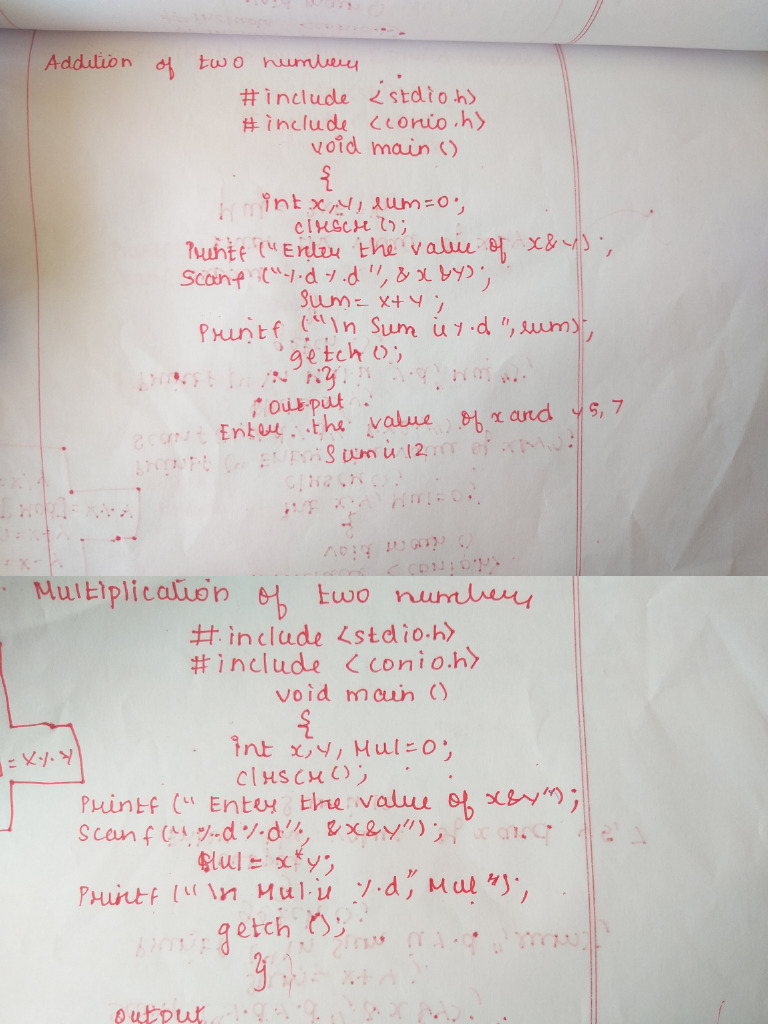 Addition of two numbers
#include <stdio.h>
#include <conio.h>
void main ()
{
int x, y, sum=0;
clrscr ();
Printf ("Enter the value of x& y);
Scanf ("%d %d", &x &y);
Sum= x+y;
Printf ("\n Sum is %d", sum);
getch ();
}
output
Enter the value of x and y 5, 7
Sum is 12
Multiplication of two numbers
#include <stdio.h>
#include <conio.h>
void main ()
{
int x, y, Mul=0;
clrscr();
= x%y
Printf (" Enter the value of x&y");
Scanf("%d %d", &x&y");
Mul = x*y;
Printf ("\n Mul is %d", Mul ");
getch ();
}
output